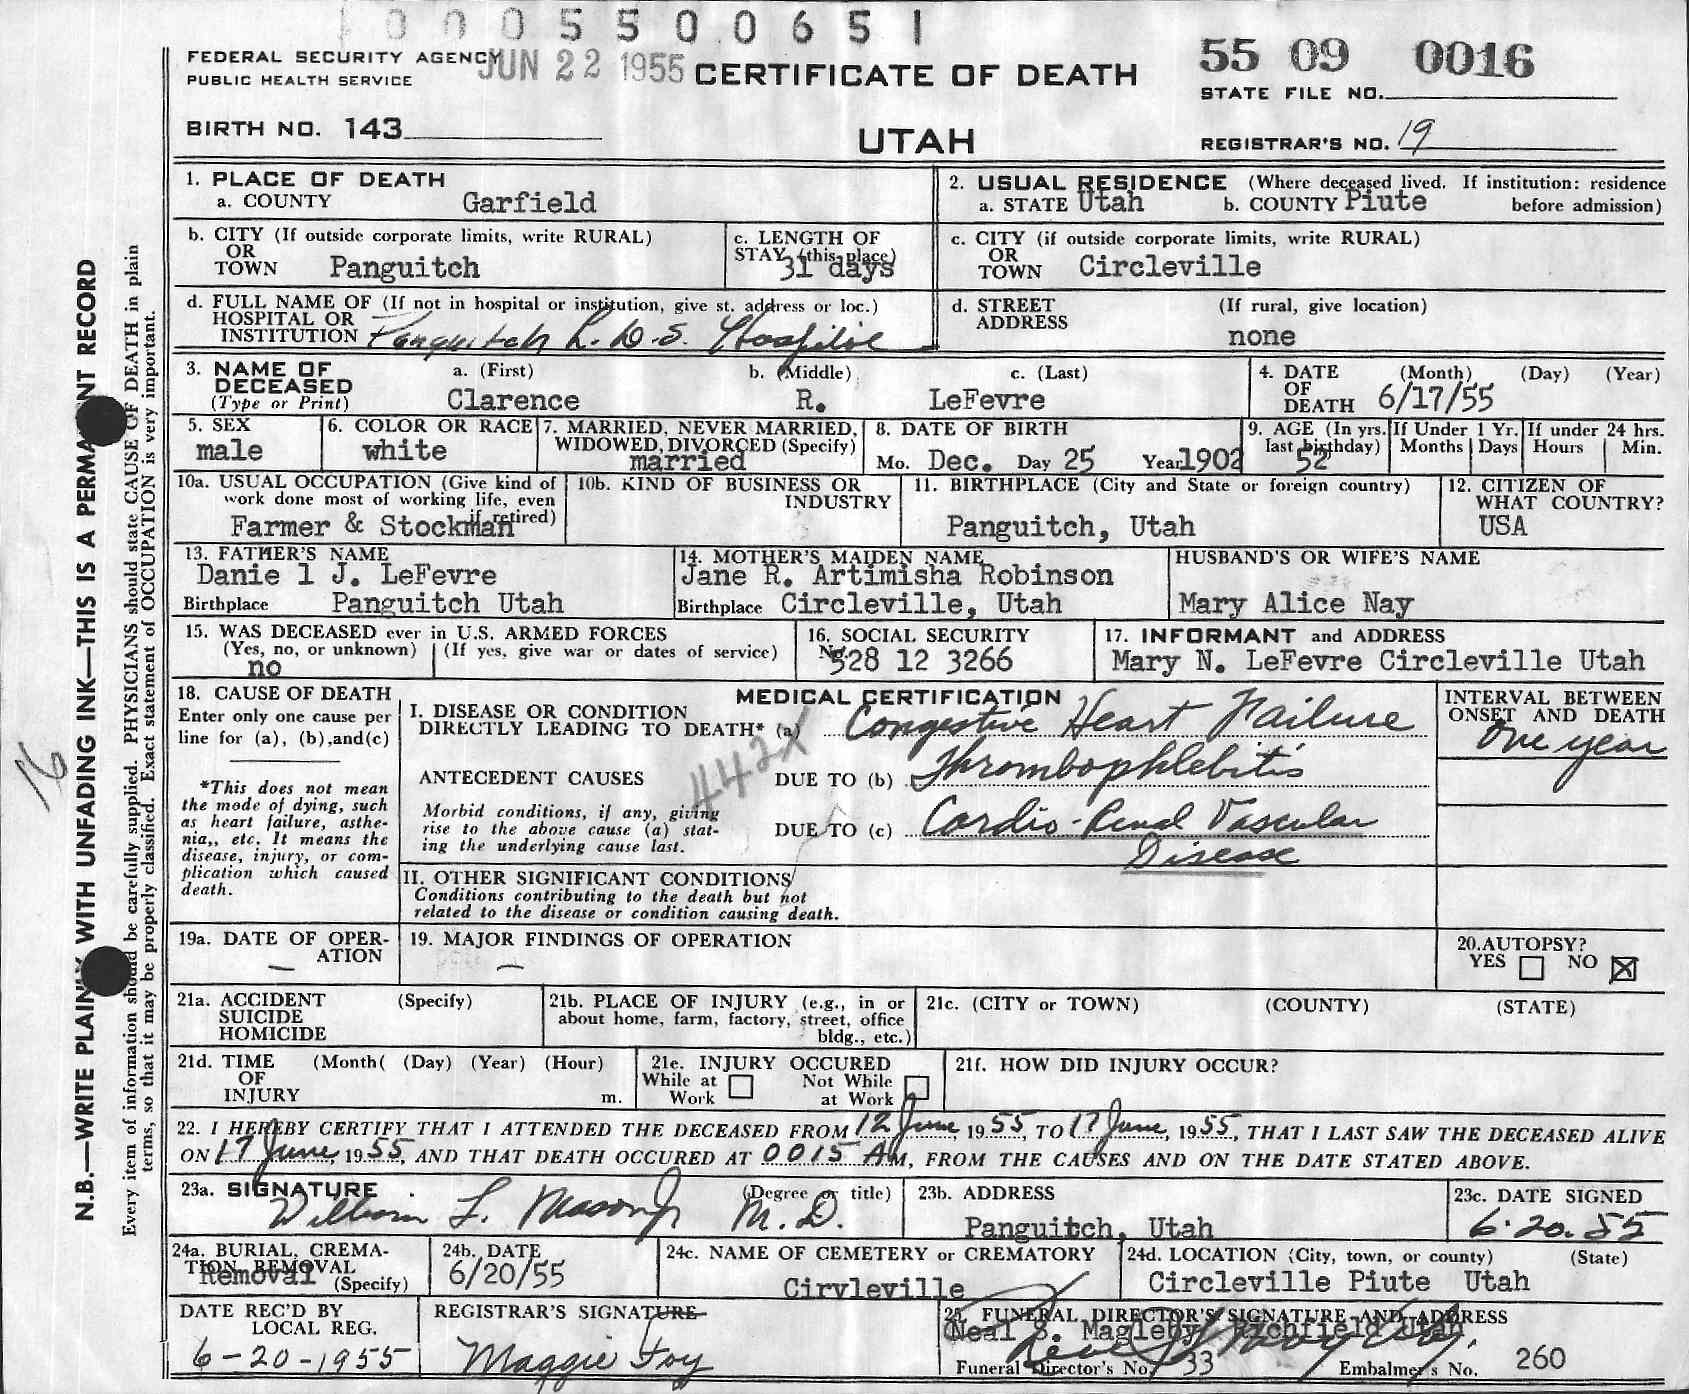 0005500651
FEDERAL SECURITY AGENCY
PUBLIC HEALTH SERVICE
JUN 22 1955
CERTIFICATE OF DEATH
55 09 0016
STATE FILE NO.
BIRTH NO. 143
UTAH
REGISTRAR'S NO. 19
1. PLACE OF DEATH
a. COUNTY Garfield
2. USUAL RESIDENCE (Where deceased lived. If institution: residence
a. STATE Utah b. COUNTY Piute before admission)
b. CITY (If outside corporate limits, write RURAL)
OR
TOWN Panguitch
c. LENGTH OF
STAY (this place)
31 days
c. CITY (if outside corporate limits, write RURAL)
OR
TOWN Circleville
d. FULL NAME OF (If not in hospital or institution, give st. address or loc.)
HOSPITAL OR
INSTITUTION Panguitch L.D.S. Hospital
d. STREET (If rural, give location)
ADDRESS
none
3. NAME OF a. (First) b. (Middle) c. (Last)
DECEASED
(Type or Print) Clarence R. LeFevre
4. DATE (Month) (Day) (Year)
OF
DEATH 6/17/55
5. SEX
male
6. COLOR OR RACE
white
7. MARRIED, NEVER MARRIED,
WIDOWED, DIVORCED (Specify)
married
8. DATE OF BIRTH
Mo. Dec. Day 25 Year 1902
9. AGE (In yrs.
last birthday)
52
If Under 1 Yr.
Months Days
If under 24 hrs.
Hours Min.
10a. USUAL OCCUPATION (Give kind of
work done most of working life, even
if retired)
Farmer & Stockman
10b. KIND OF BUSINESS OR
INDUSTRY
11. BIRTHPLACE (City and State or foreign country)
Panguitch, Utah
12. CITIZEN OF
WHAT COUNTRY?
USA
13. FATHER'S NAME
Danie l J. LeFevre
Birthplace Panguitch Utah
14. MOTHER'S MAIDEN NAME
Jane R. Artimisha Robinson
Birthplace Circleville, Utah
HUSBAND'S OR WIFE'S NAME
Mary Alice Nay
15. WAS DECEASED ever in U.S. ARMED FORCES
(Yes, no, or unknown) (If yes, give war or dates of service)
no
16. SOCIAL SECURITY
No.
528 12 3266
17. INFORMANT and ADDRESS
Mary N. LeFevre Circleville Utah
18. CAUSE OF DEATH
Enter only one cause per
line for (a), (b),and(c)
*This does not mean
the mode of dying, such
as heart failure, asthe-
nia,, etc. It means the
disease, injury, or com-
plication which caused
death.
MEDICAL CERTIFICATION
I. DISEASE OR CONDITION
DIRECTLY LEADING TO DEATH* (a) Congestive Heart Failure
442X
ANTECEDENT CAUSES DUE TO (b) Thrombophlebitis
Morbid conditions, if any, giving
rise to the above cause (a) stat-
ing the underlying cause last.
DUE TO (c) Cardio-Renal Vascular
Disease
INTERVAL BETWEEN
ONSET AND DEATH
One year
II. OTHER SIGNIFICANT CONDITIONS
Conditions contributing to the death but not
related to the disease or condition causing death.
19a. DATE OF OPER-
ATION
—
19. MAJOR FINDINGS OF OPERATION
—
20.AUTOPSY?
YES NO
21a. ACCIDENT (Specify)
SUICIDE
HOMICIDE
21b. PLACE OF INJURY (e.g., in or
about home, farm, factory, street, office
bldg., etc.)
21c. (CITY or TOWN) (COUNTY) (STATE)
21d. TIME (Month( (Day) (Year) (Hour)
OF
INJURY m.
21e. INJURY OCCURED
While at Not While
Work at Work
21f. HOW DID INJURY OCCUR?
22. I HEREBY CERTIFY THAT I ATTENDED THE DECEASED FROM 12 June, 1955, TO 17 June, 1955, THAT I LAST SAW THE DECEASED ALIVE
ON 17 June, 1955, AND THAT DEATH OCCURED AT 0015 AM, FROM THE CAUSES AND ON THE DATE STATED ABOVE.
23a. SIGNATURE (Degree or title)
William L. Mason Jr M.D.
23b. ADDRESS
Panguitch, Utah
23c. DATE SIGNED
6-20-55
24a. BURIAL, CREMA-
TION REMOVAL
Removal (Specify)
24b. DATE
6/20/55
24c. NAME OF CEMETERY or CREMATORY
Ciryleville
24d. LOCATION (City, town, or county) (State)
Circleville Piute Utah
DATE REC'D BY
LOCAL REG.
6-20-1955
REGISTRAR'S SIGNATURE
Maggie Foy
25. FUNERAL DIRECTOR'S SIGNATURE AND ADDRESS
Neal S. Magleby Richfield Utah
Funeral Director's No. 33 Embalmer's No. 260
N.B.—WRITE PLAINLY WITH UNFADING INK—THIS IS A PERMANENT RECORD
Every item of information should be carefully supplied. PHYSICIANS should state CAUSE OF DEATH in plain
terms, so that it may be properly classified. Exact statement of OCCUPATION is very important.
16